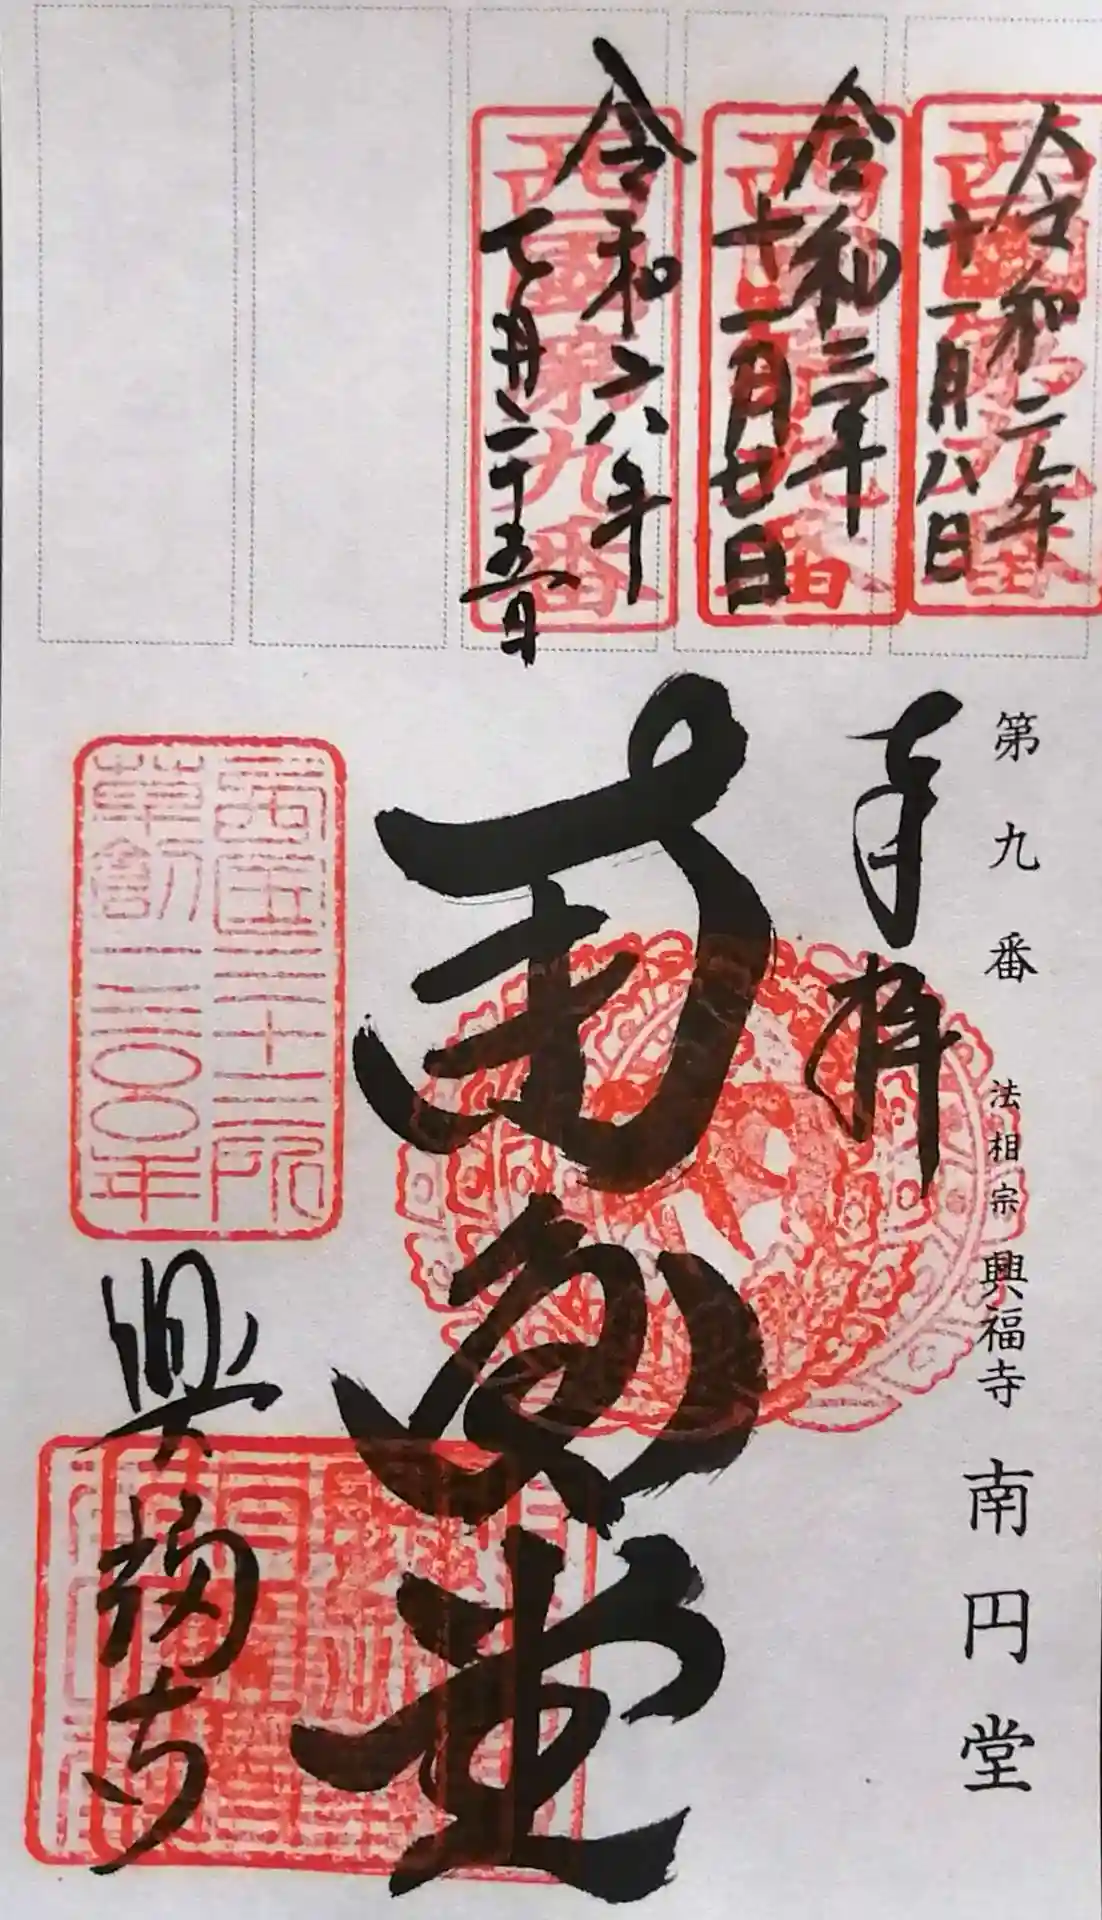 令和二年
十一月八日
西國第九番
令和三年
十一月廿日
西國第九番
令和六年
七月二十五日
西國第九番
第九番 法相宗 興福寺 南円堂
奉拝
南円堂
西国三十三所
草創一三〇〇年
興福寺